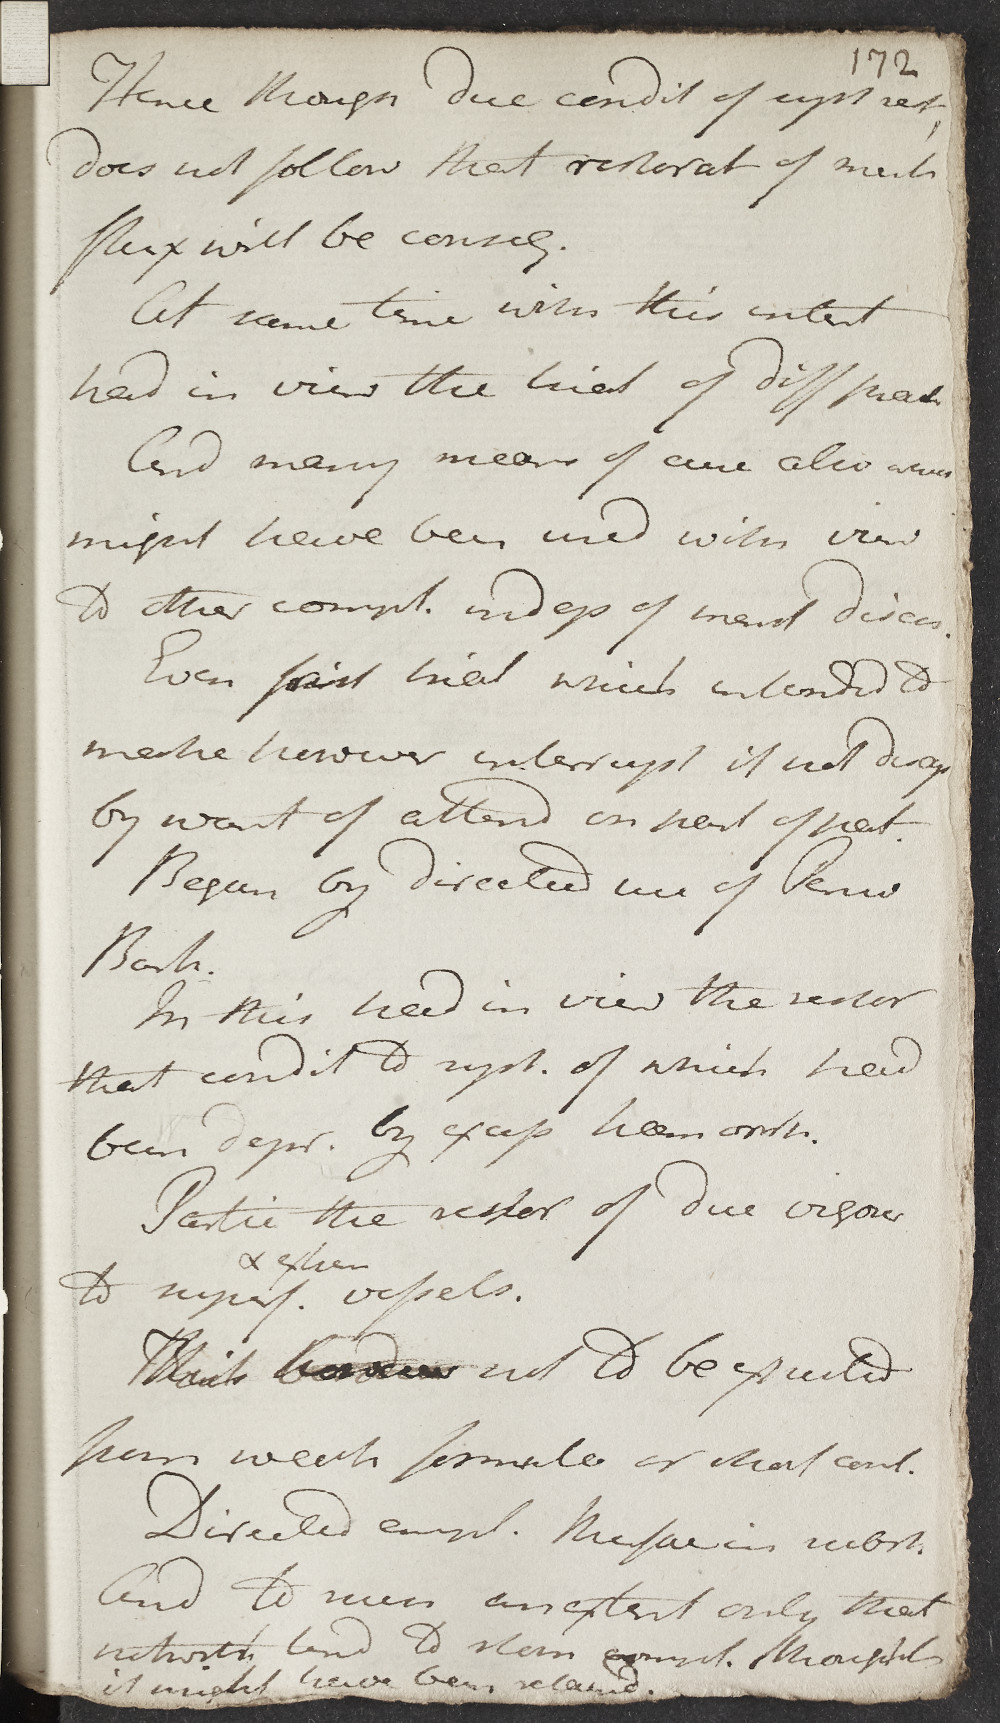 172
Hence though due condit of syst rest,
does not follow that restorat of menst
flux will be conseq.
At same time with this intent
had in view the trial of diff pract
And many means of cure also were
might have been used with view
to other compl. indep of menst diseas.
Even first trial which intended to
make however interrupt if not disap
by want of attend on part of pat.
Began by directed use of Peruv
Bark.
In this had in view the restor
that condit to syst. of which had
been depr. by excess hæmorrh.
Partic the restor of due vigour
& exhan
to superf. vessels.
This not to be expected
from weak formulæ or short cont.
Directed empl. in subst.
And to such an extent only that
notwith tend to stom compl. though
it might have been retained.